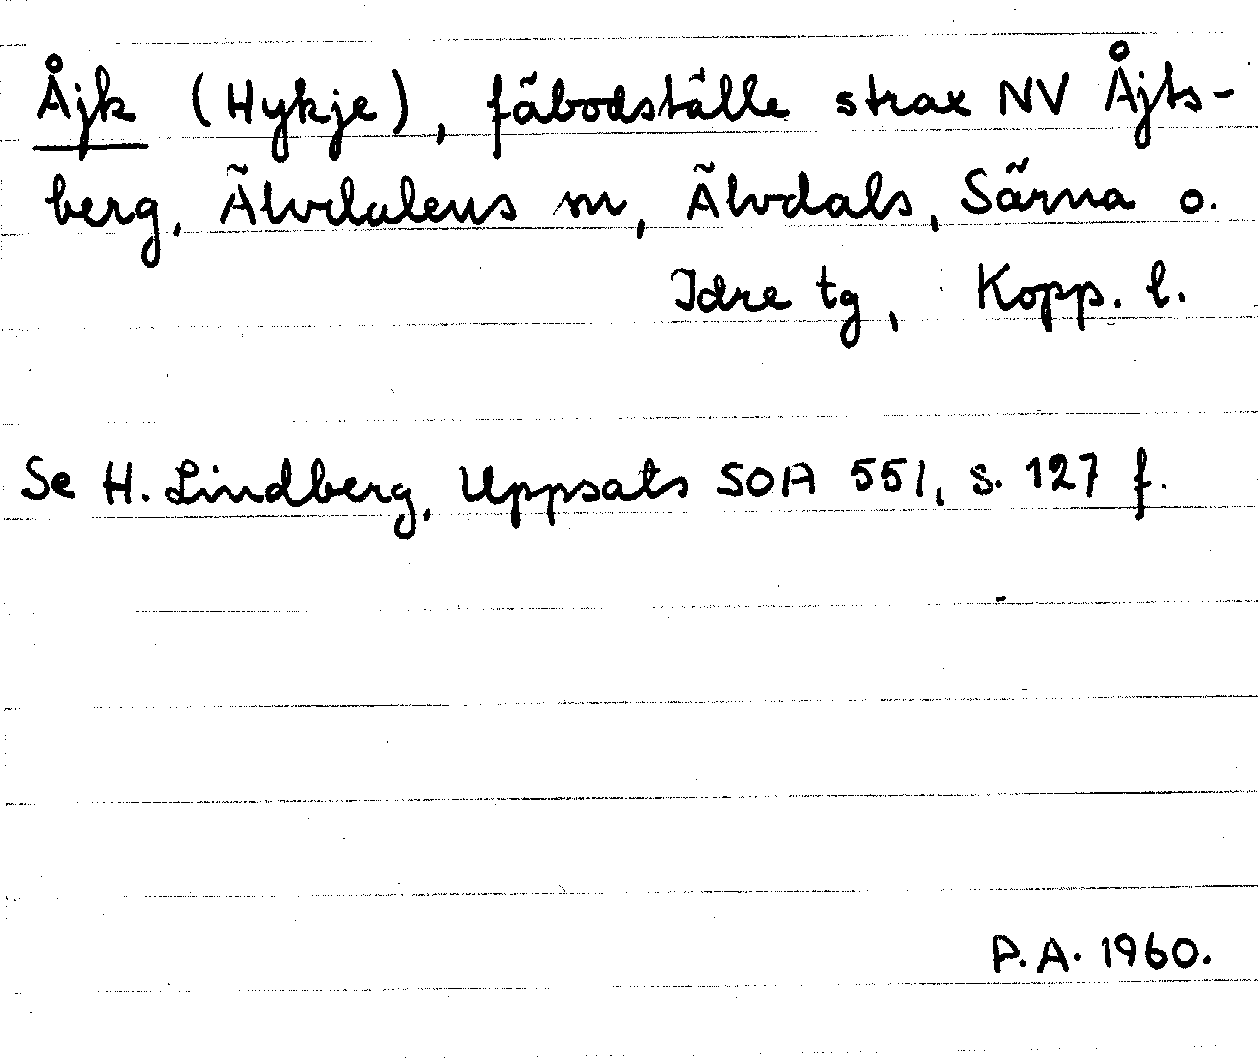 Åjk (Hykje), fäbodställe strax NV Åjts-
berg, Älvdalens sn, Älvdals, Särna o.
Idre tg, Kopp. l.
Se H. Lindberg, Uppsats SOA 551, s. 127 f.
P.A. 1960.